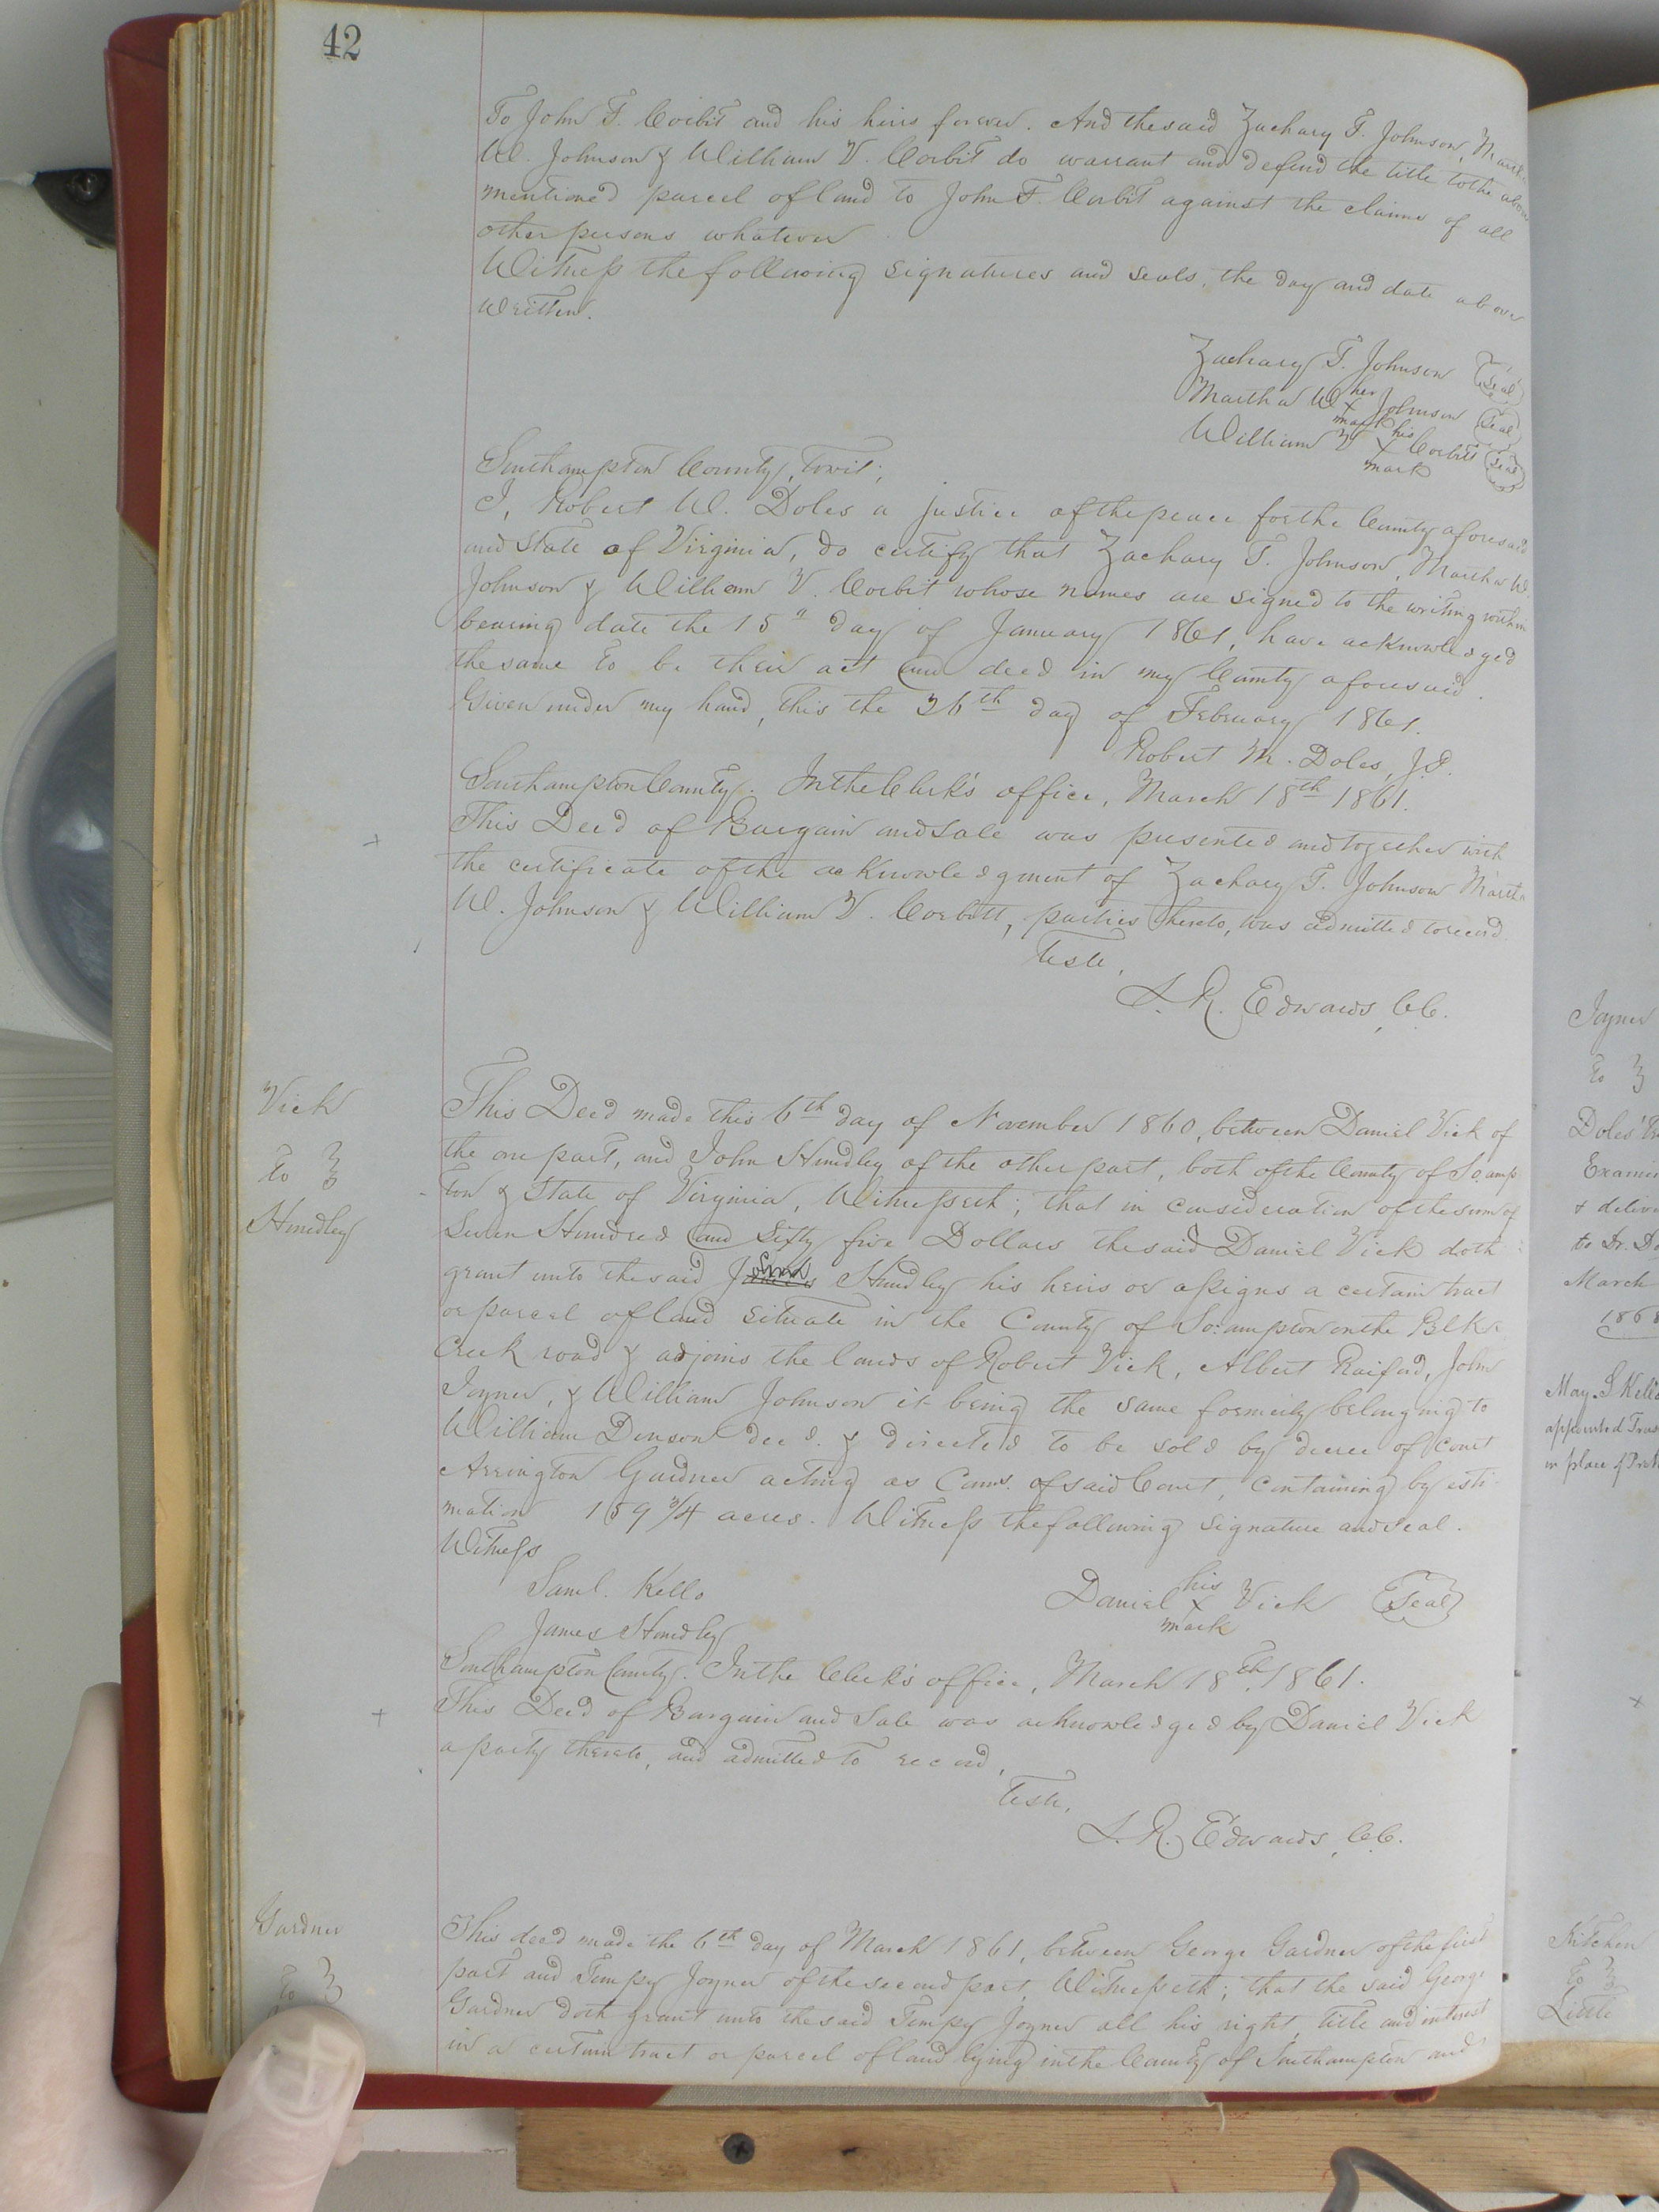 42
To John F. Corbit and his heirs forever. And the said Zachary T. Johnson, Martha
W. Johnson & William V. Corbit do warrant and defend the title to the above
mentioned parcel of land to John F. Corbit against the claims of all
other persons whatever.
Witness the following signatures and seals, the day and date above
written.
Zachary T. Johnson Seal
Martha W her x mark Johnson Seal
William V his x mark Corbitt Seal
Southampton County, towit;
I, Robert W. Doles a justice of the peace for the County aforesaid
and State of Virginia, do certify that Zachary T. Johnson, Martha W.
Johnson & William V. Corbit whose names are signed to the writing within
bearing date the 15th day of January 1861, have acknowledged
the same to be their act and deed in my County aforesaid.
Given under my hand, this the 26th day of February 1861.
Robert M. Doles, J.P.
Southampton County. In the Clerk's office, March 18th 1861.
This Deed of Bargain and Sale was presented and together with
the certificate of the acknowledgment of Zachary T. Johnson Martha
W. Johnson & William V. Corbitt, parties thereto, was admitted to record.
Teste,
L. R. Edwards, C.C.
Vick
to
Hundley
This Deed made this 6th day of November 1860, between Daniel Vick of
the one part, and John Hundley of the other part, both of the County of So.amp
ton & State of Virginia, Witnesseth; that in consideration of the sum of
Seven Hundred and Sifty five Dollars the said Daniel Vick doth
grant unto the said John Hundley his heirs or assigns a certain tract
or parcel of land situate in the County of So:ampton on the Blk
Creek road & adjoins the lands of Robert Vick, Albert Raiford, John
Joyner, & William Johnson it being the same formerly belonging to
William Denson decd. & directed to be sold by decree of Court
Arrington Gardner acting as Coms. of said Court, containing by esti-
mation 159 3/4 acres. Witness the following signature and seal.
Witness
Saml. Kello
James Hundley
Daniel his x mark Vick Seal
Southampton County. In the Clerk's office, March 18th, 1861.
This Deed of Bargain and Sale was acknowledged by Daniel Vick
a party thereto, and admitted to record,
Teste,
L. R. Edwards, C.C.
Gardner
to
This deed made the 6th day of March 1861, between George Gardner of the first
part and Timpy Joyner of the second part, Witnesseth; that the said George
Gardner doth grant unto the said Timpy Joyner all his right, title and interest
in a certain tract or parcel of land lying in the County of Southampton and
Joyner
to
Doles'
& deliv
to Dr. Do
March
1868
May. S. Kello
appointed Trus
in place of
Kitchen
to
Little